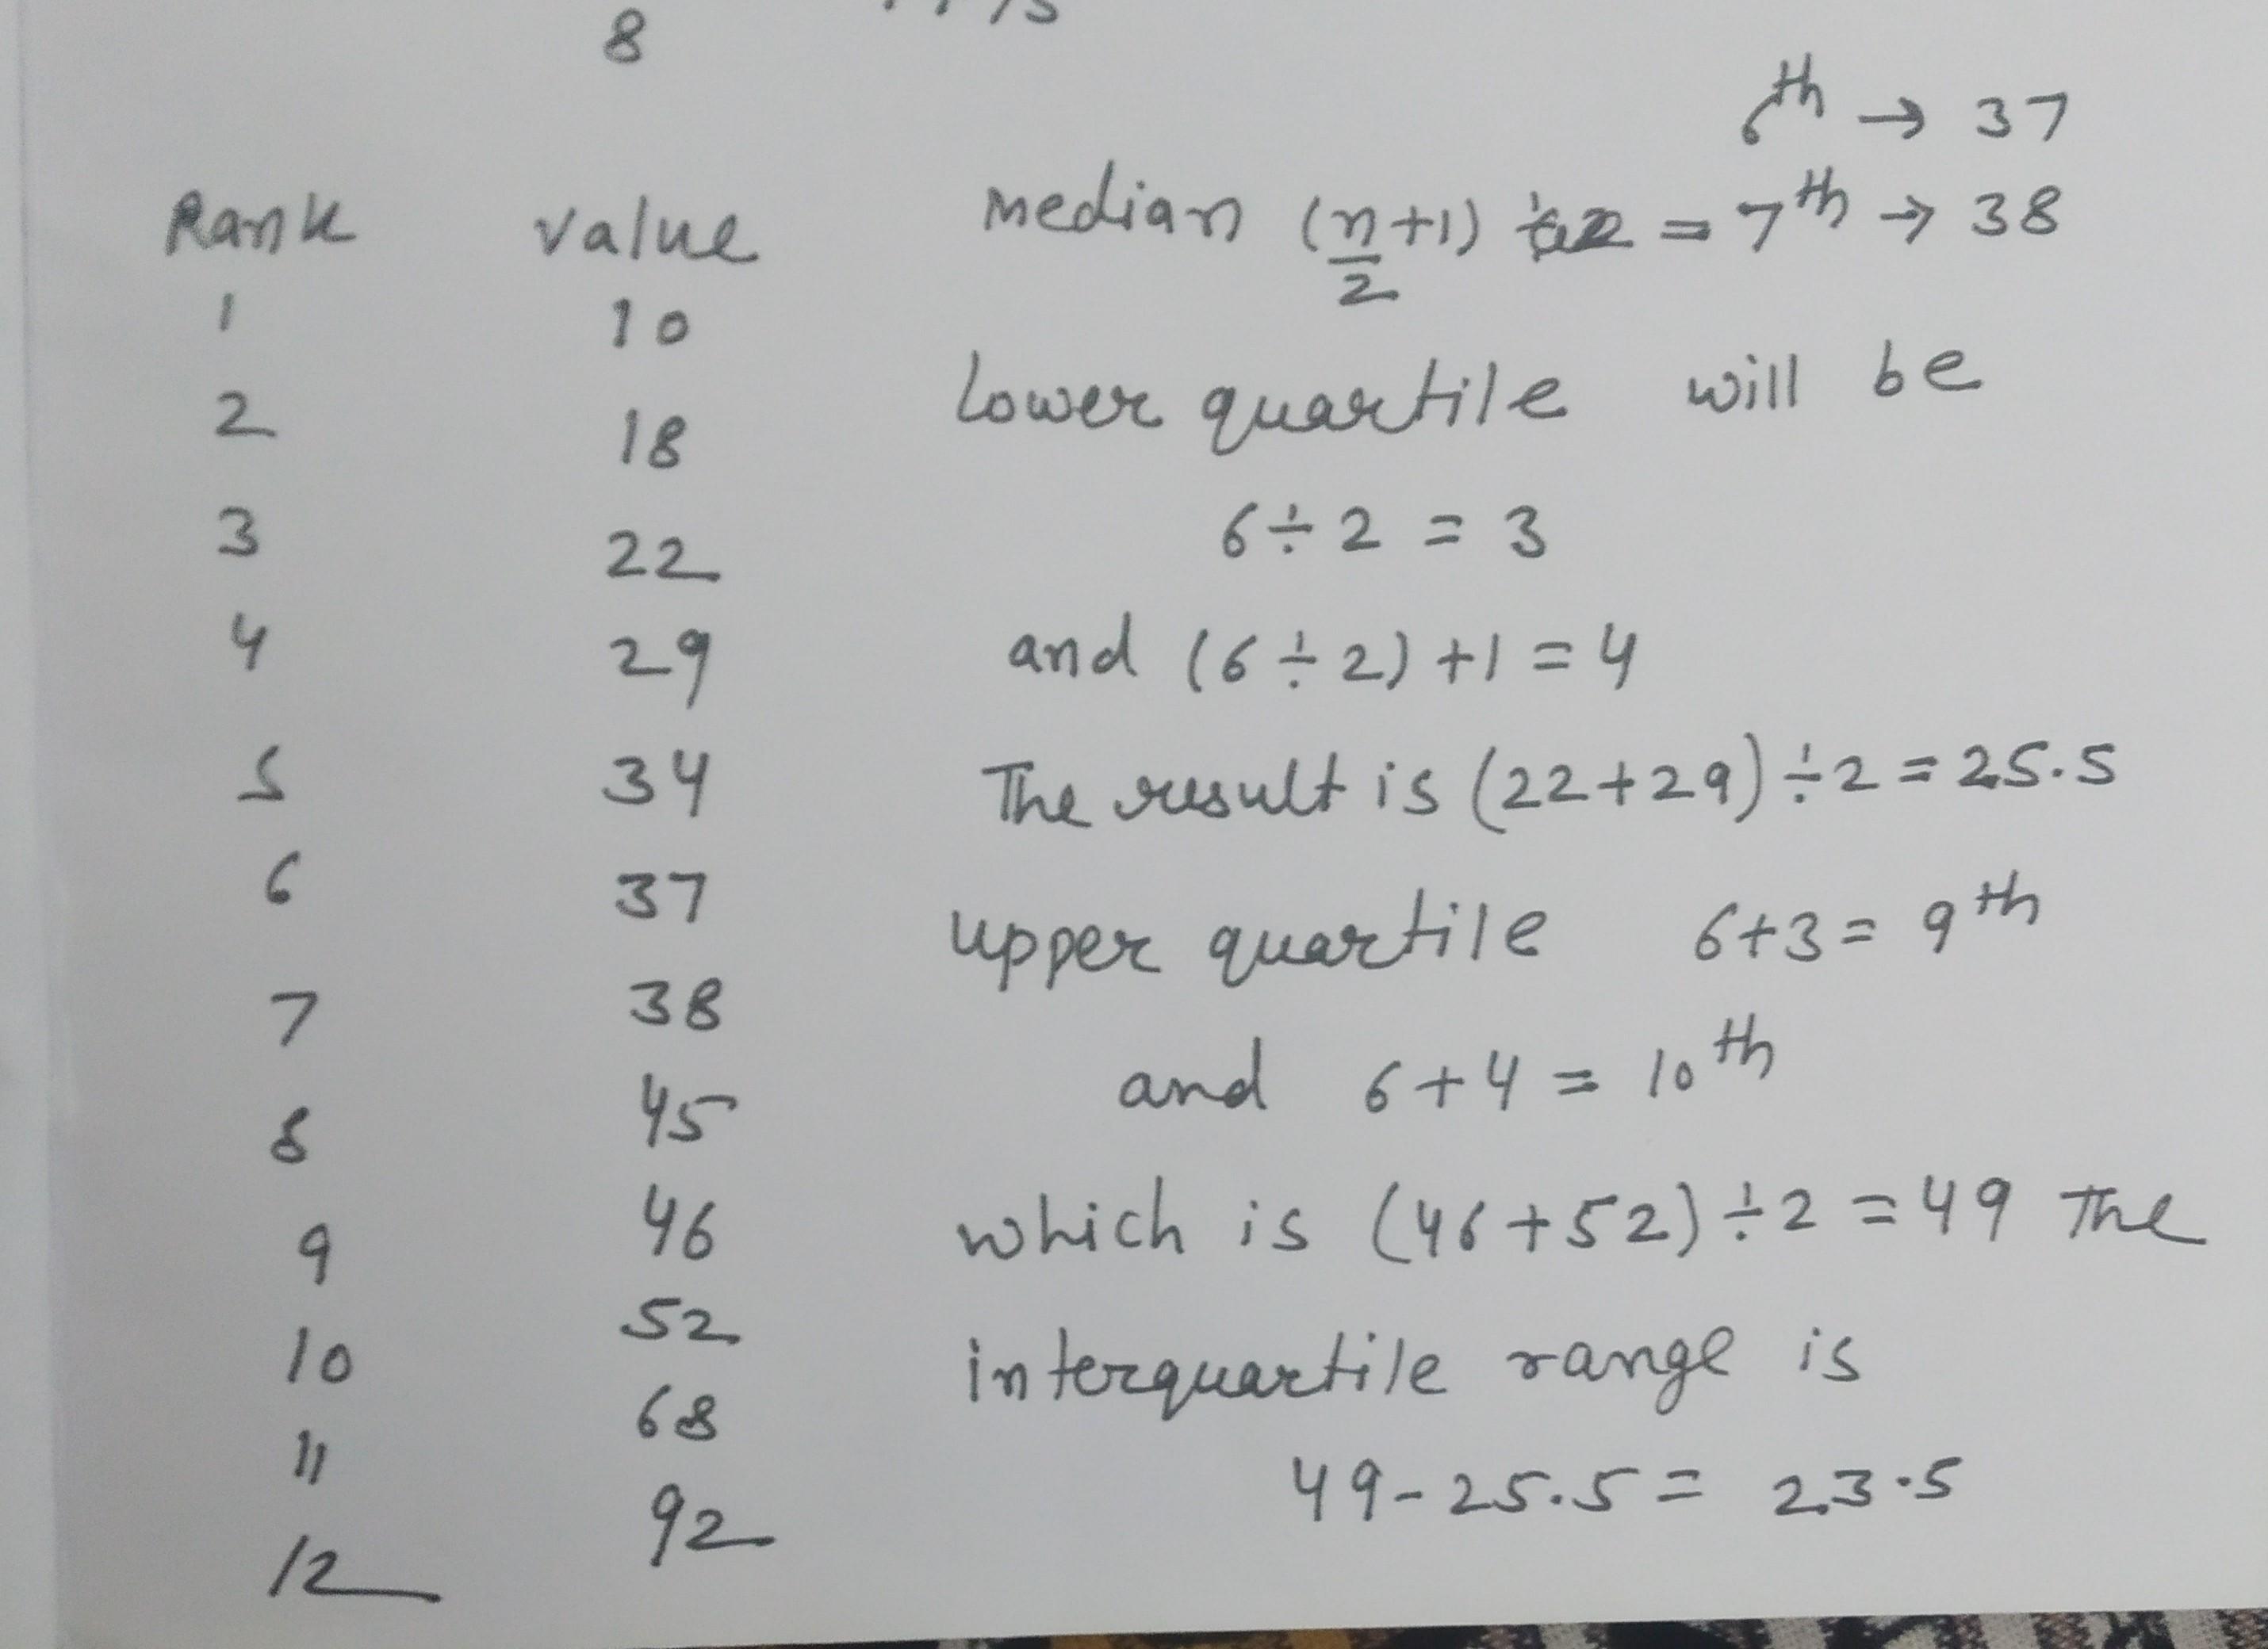 8
Rank value
1 10
2 18
3 22
4 29
5 34
6 37
7 38
8 45
9 46
10 52
11 68
12 92
6th → 37
median (n/2+1) = 7th → 38
Lower quartile will be
6÷2 = 3
and (6÷2)+1=4
The result is (22+29)÷2=25.5
upper quartile 6+3= 9th
and 6+4 = 10th
which is (46+52)÷2 =49 The
interquartile range is
49-25.5= 23.5